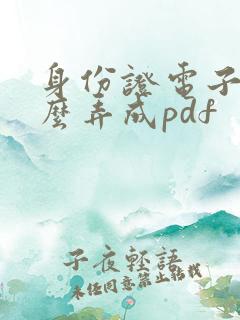 身份證電子
麼弄成pdf
子夜輕語
未经同意禁止转载